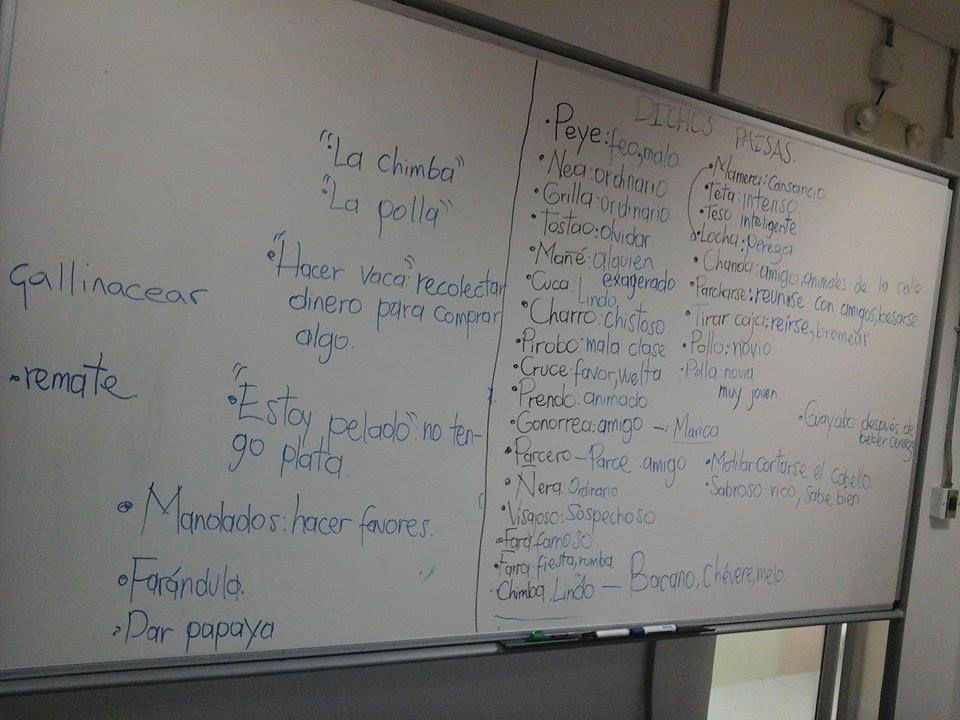 "La chimba"
"La polla"
• "Hacer vaca": recolectar
dinero para comprar
algo.
gallinacear
• remate.
• "Estoy pelado": no ten-
go plata.
• Manolados: hacer favores.
• Farándula.
• Dar papaya
DICHOS PAISAS.
• Peye: feo, malo
• Nea: ordinario
• Grilla: ordinario
• Tostao: olvidar
• Mañé: alguien
exagerado
• Cuca: Lindo
• Charro: chistoso
• Pirobo: mala clase
• Cruce: favor, vuelta
• Prendo: animado.
• Gonorrea: amigo – Marica
• Parcero – Parce. amigo
• Ñera: Ordinario
• Visajoso: Sospechoso
• Fara famoso.
• Farra fiesta, rumba
• Chimba. Lindo – Bacano, Chévere, melo.
• Mamera: Cansancio
• Teta: intenso.
• Teso inteligente
• Locha: pereza
• Chanda: amigo, animales de la calle
• Parcharse: reunirse con amigos, besarse
• Tirar caja: reirse, bromear
• Pollo: novio
• Polla: novia
muy joven.
• Guayabo después de
beber cerveza
• Motilar cortarse el cabello.
• Sabroso: rico, sabe bien